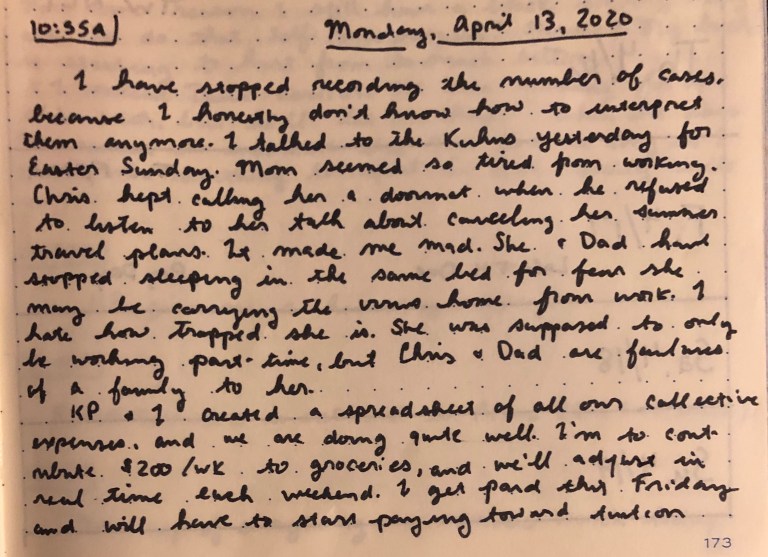 10:55a Monday, April 13, 2020
I have stopped recording the number of cases.
because I honestly don't know how to interpret
them anymore. I talked to the Kuhns yesterday for
Easter Sunday. Mom seemed so tired from working.
Chris kept calling her a doormat when he refused
to listen to her talk about canceling her summer
travel plans. It made me mad. She & Dad have
stopped sleeping in the same bed for fear she
may be carrying the virus home from work. I
hate how trapped she is. She was supposed to only
be working part-time, but Chris & Dad are failures
of a family to her.
KP & I created a spreadsheet of all our collective
expenses, and we are doing quite well. I'm to cont-
ribute $200/wk to groceries, and we'll adjust in
real time each weekend. I get paid this Friday
and will have to start paying toward tuition
173